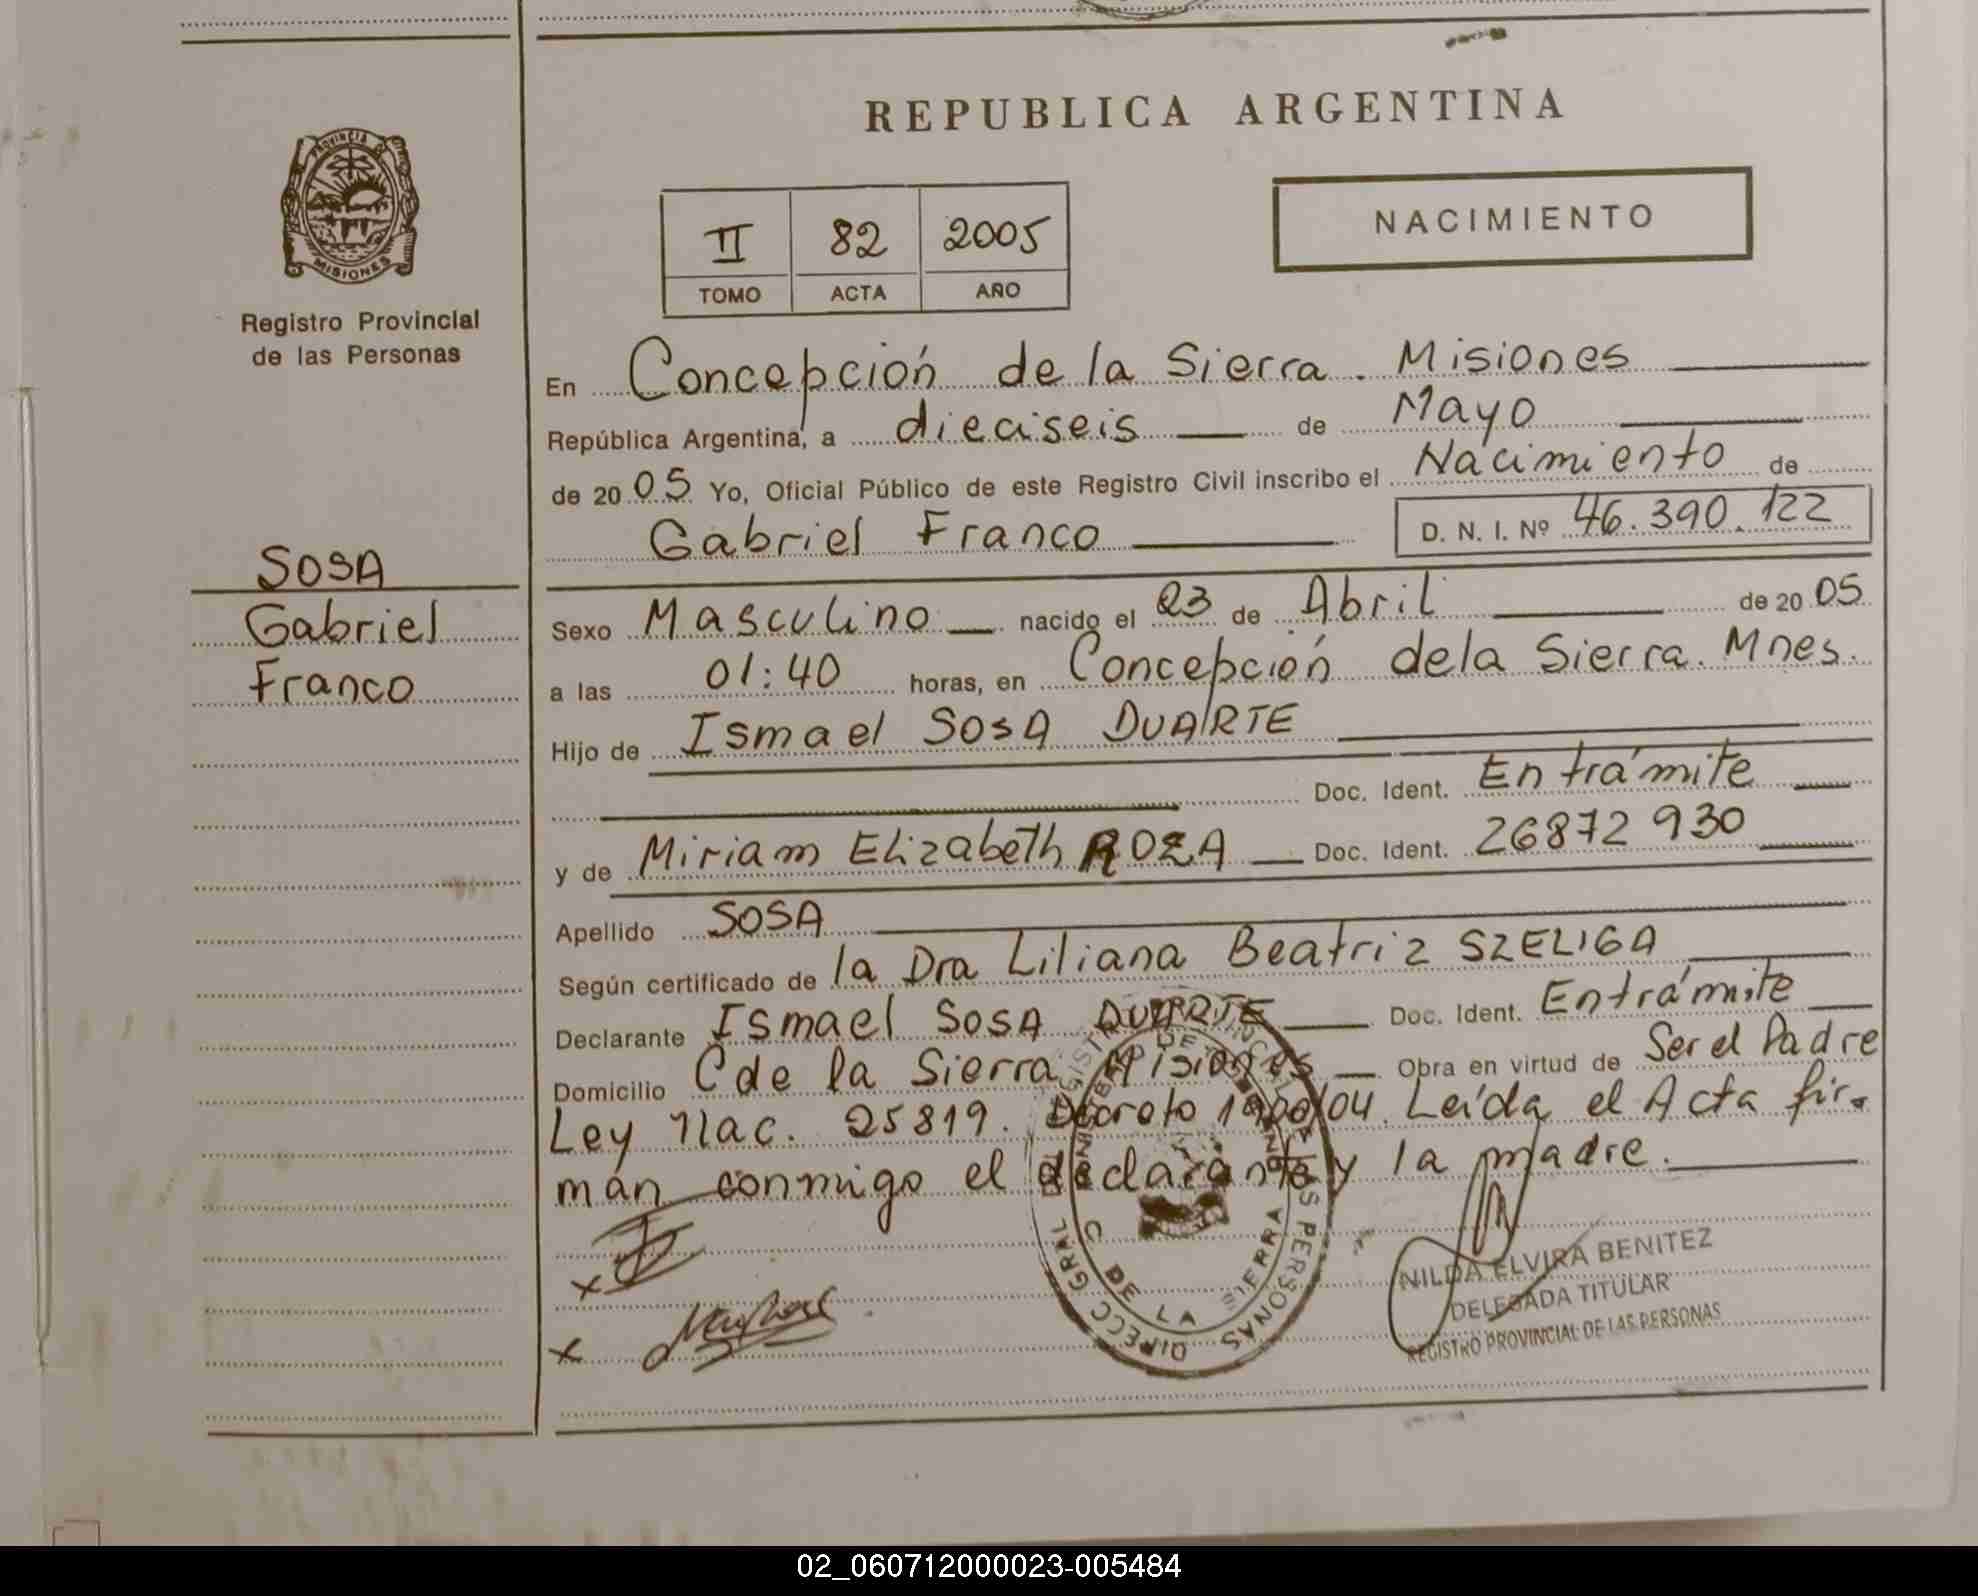 REPUBLICA ARGENTINA
PROVINCIA DE
MISIONES
Registro Provincial
de las Personas
II 82 2005
TOMO ACTA AÑO
NACIMIENTO
En Concepción de la Sierra. Misiones
República Argentina, a dieciseis de Mayo
de 2005 Yo, Oficial Público de este Registro Civil inscribo el Nacimiento de
Gabriel Franco D. N. I. Nº 46.390.122
SOSA
Gabriel
Franco
Sexo Masculino nacido el 23 de Abril de 2005
a las 01:40 horas, en Concepción dela Sierra. Mnes.
Hijo de Ismael SOSA DUARTE
Doc. Ident. En trámite
y de Miriam Elizabeth ROZA Doc. Ident. 26872930
Apellido SOSA
Según certificado de la Dra Liliana Beatriz SZELIGA
Declarante Ismael SOSA DUARTE Doc. Ident. En trámite
Domicilio C de la Sierra Misiones Obra en virtud de Ser el Padre
Ley Nac. 25819. Decreto /04. Leída el Acta fir-
man conmigo el declarante y la madre.
DIRECC GRAL LAS PERSONAS
C DE LA SIERRA
NILDA ELVIRA BENITEZ
DELEGADA TITULAR
REGISTRO PROVINCIAL DE LAS PERSONAS
02_060712000023-005484